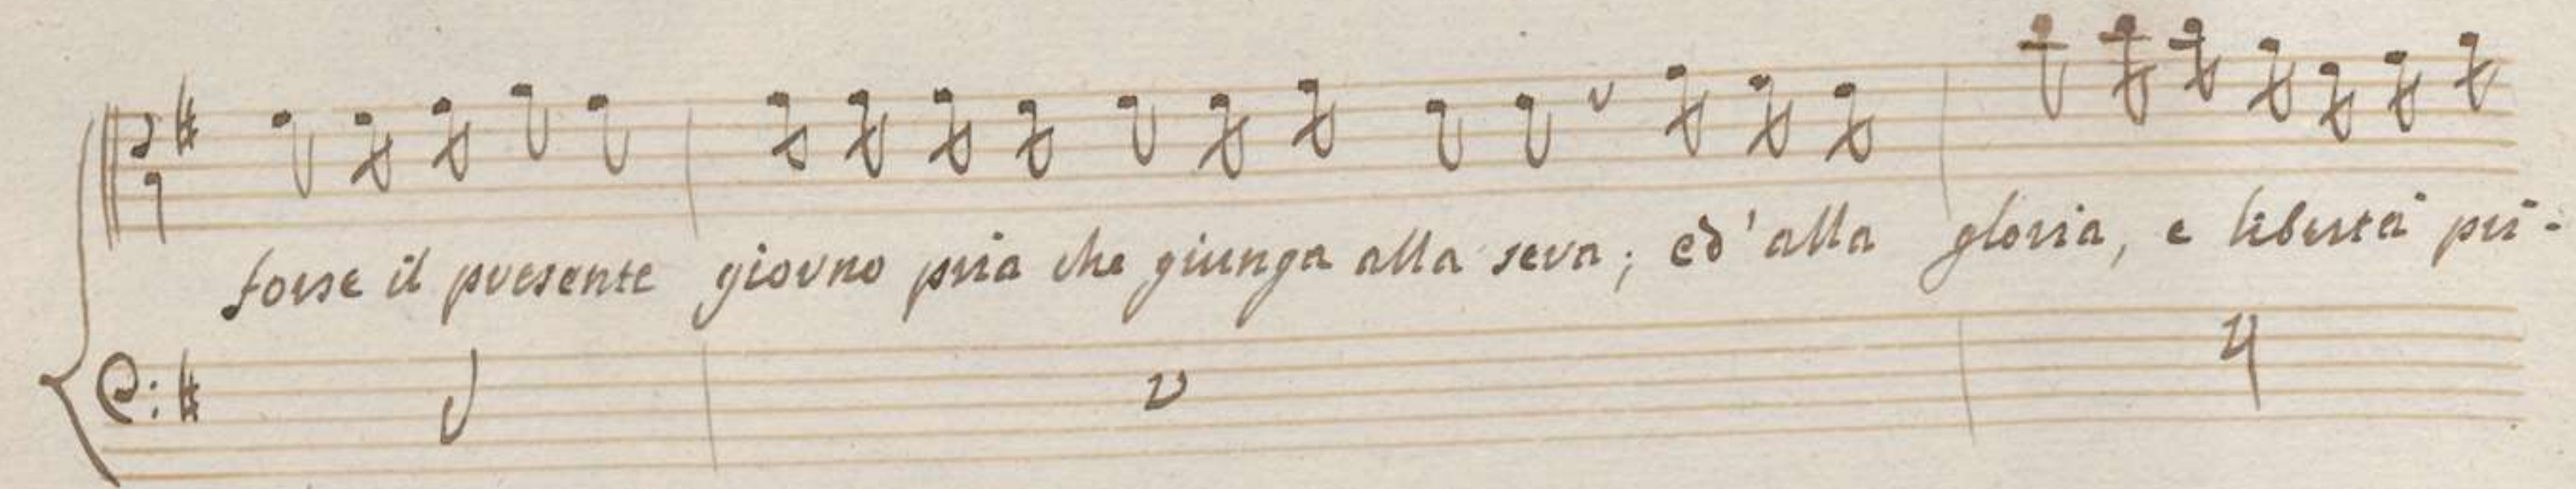 forse il presente giorno pria che giunga alla sera; ed' alla gloria, e libertà pri-